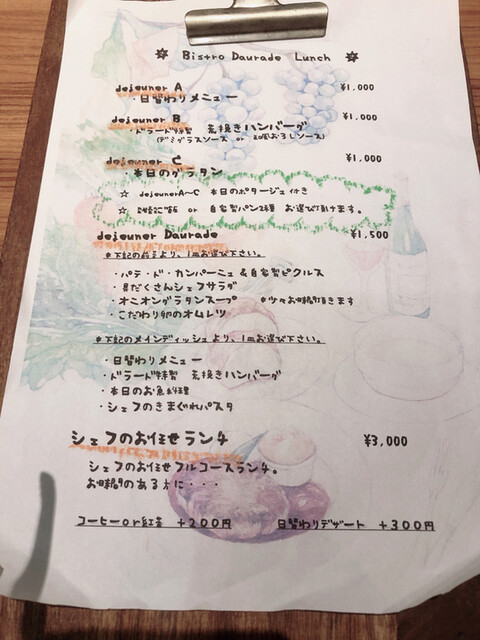 Bistro Daurade Lunch
dejeuner A ¥1,000
・日替わりメニュー
dejeuner B ¥1,000
・ドラード特製 荒挽きハンバーグ
(デミグラスソース or 和風おろしソース)
dejeuner C ¥1,000
・本日のグラタン
☆ dejeunerA〜C 本日のポタージュ付き
☆ ご飯 or 自家製パン2種 お選び頂けます。
dejeuner Daurade ¥1,500
※下記の前菜より、1皿お選び下さい。
・パテ・ド・カンパーニュ&自家製ピクルス
・具だくさんシェフサラダ
・オニオングラタンスープ ※少々お時間頂きます
・こだわり卵のオムレツ
※下記のメインディッシュより、1皿お選び下さい。
・日替わりメニュー
・ドラード特製 荒挽きハンバーグ
・本日のお魚料理
・シェフのきまぐれパスタ
シェフのお任せランチ ¥3,000
シェフのお任せフルコースランチ。
お時間のある方に・・・
コーヒーor紅茶 +200円 日替わりデザート +300円